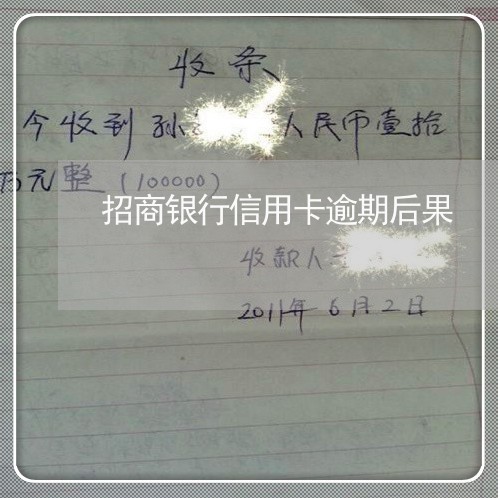 收条
今收到孙 人民币壹拾
万元整（100000）
招商银行信用卡逾期后果
收款人
2011年6月2日